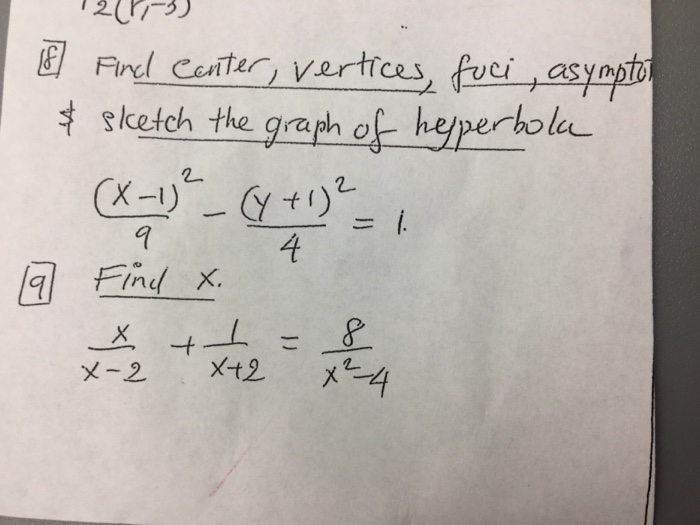 [8] Find center, vertices, foci, asympto
& sketch the graph of heyperbola
(x-1)²/9 - (y+1)²/4 = 1.
[9] Find x.
x/x-2 + 1/x+2 = 8/x²-4